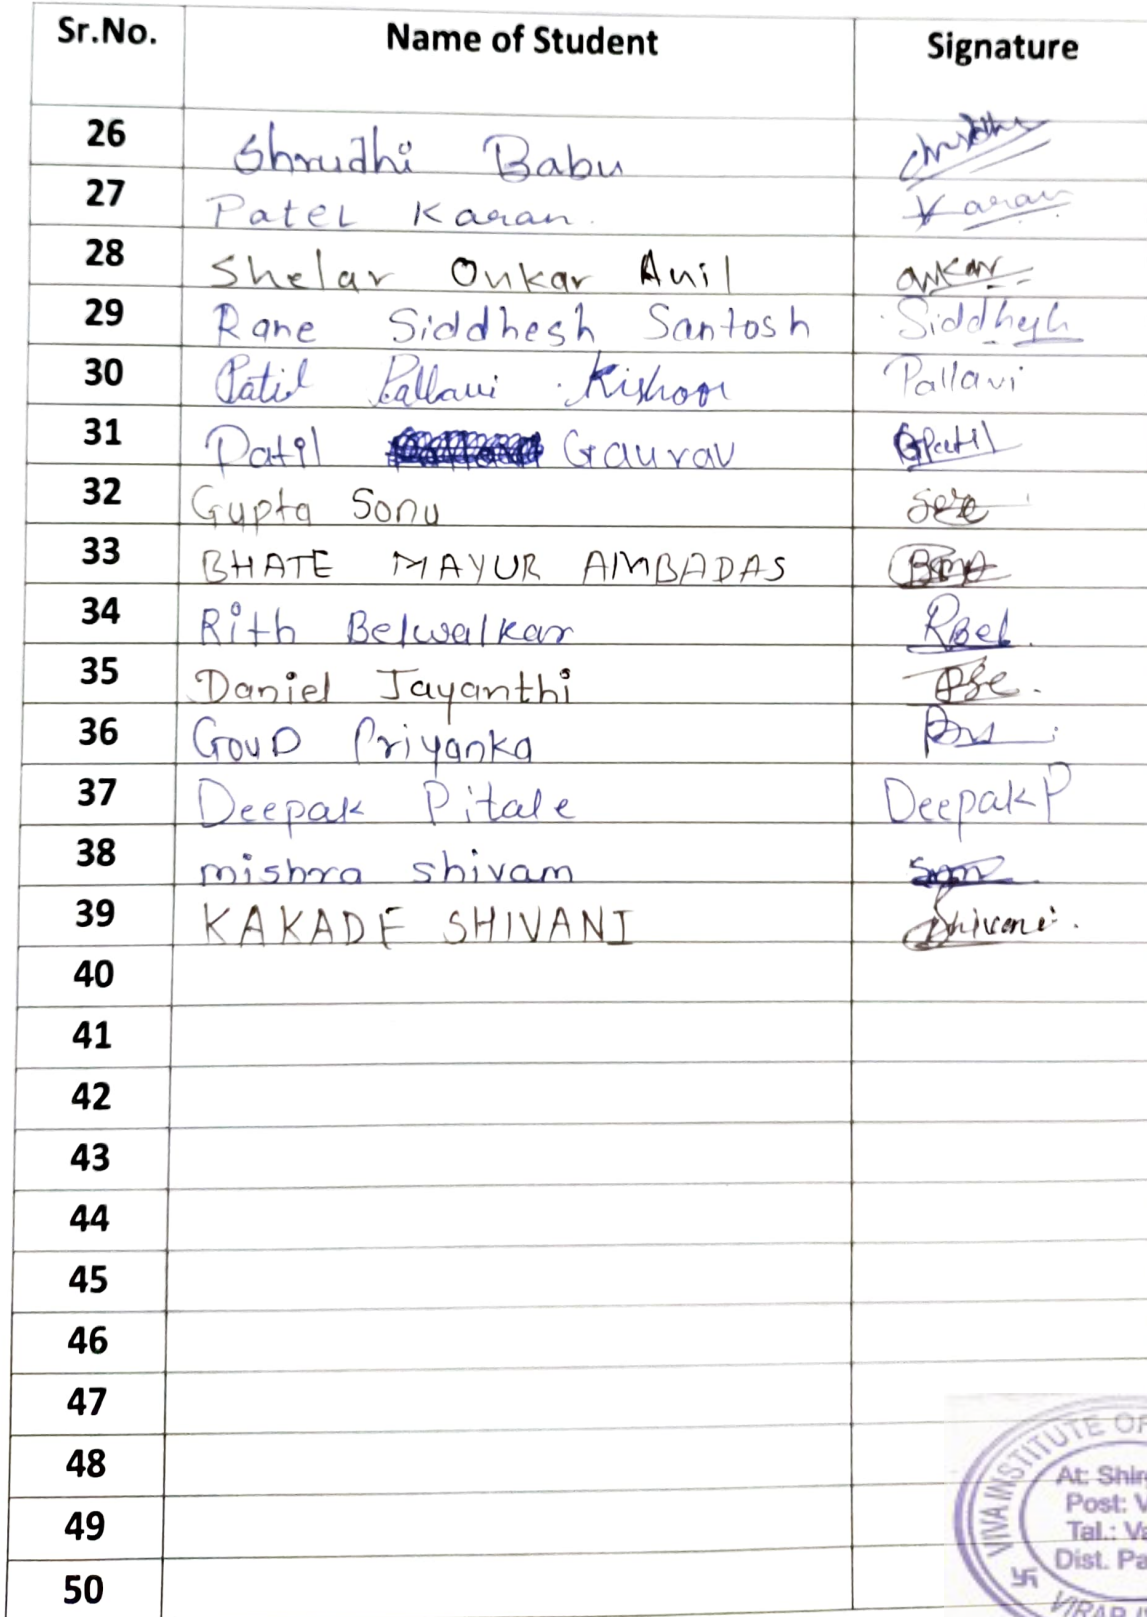 Sr.No. Name of Student Signature
26 Shrudhi Babu
27 Patel Karan. Karan
28 Shelar Onkar Anil onkar
29 Rane Siddhesh Santosh Siddhesh
30 Patil Pallavi Kishoor Pallavi
31 Patil Gaurav GPatil
32 Gupta Sonu
33 BHATE MAYUR AMBADAS
34 Rith Belwalkar RBel.
35 Daniel Jayanthi
36 GouD Priyanka
37 Deepak Pitale Deepak P
38 mishra shivam
39 KAKADE SHIVANI Shivani.
40
41
42
43
44
45
46
47
48
49
50
VIVA INSTITUTE OF
At: Shir
Post: V
Tal.: Va
Dist. Pa
VIRAR